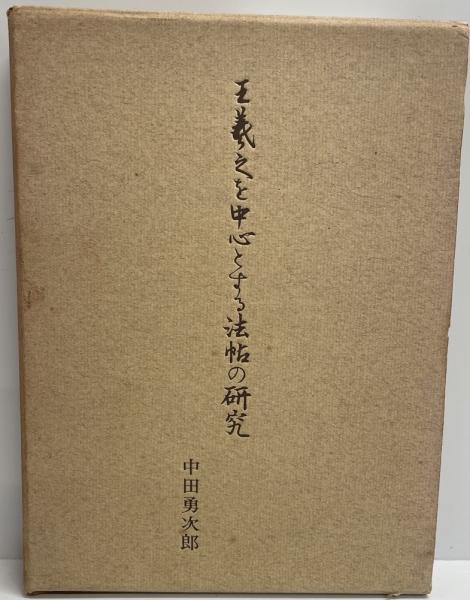 王羲之を中心とする法帖の研究
中田勇次郎